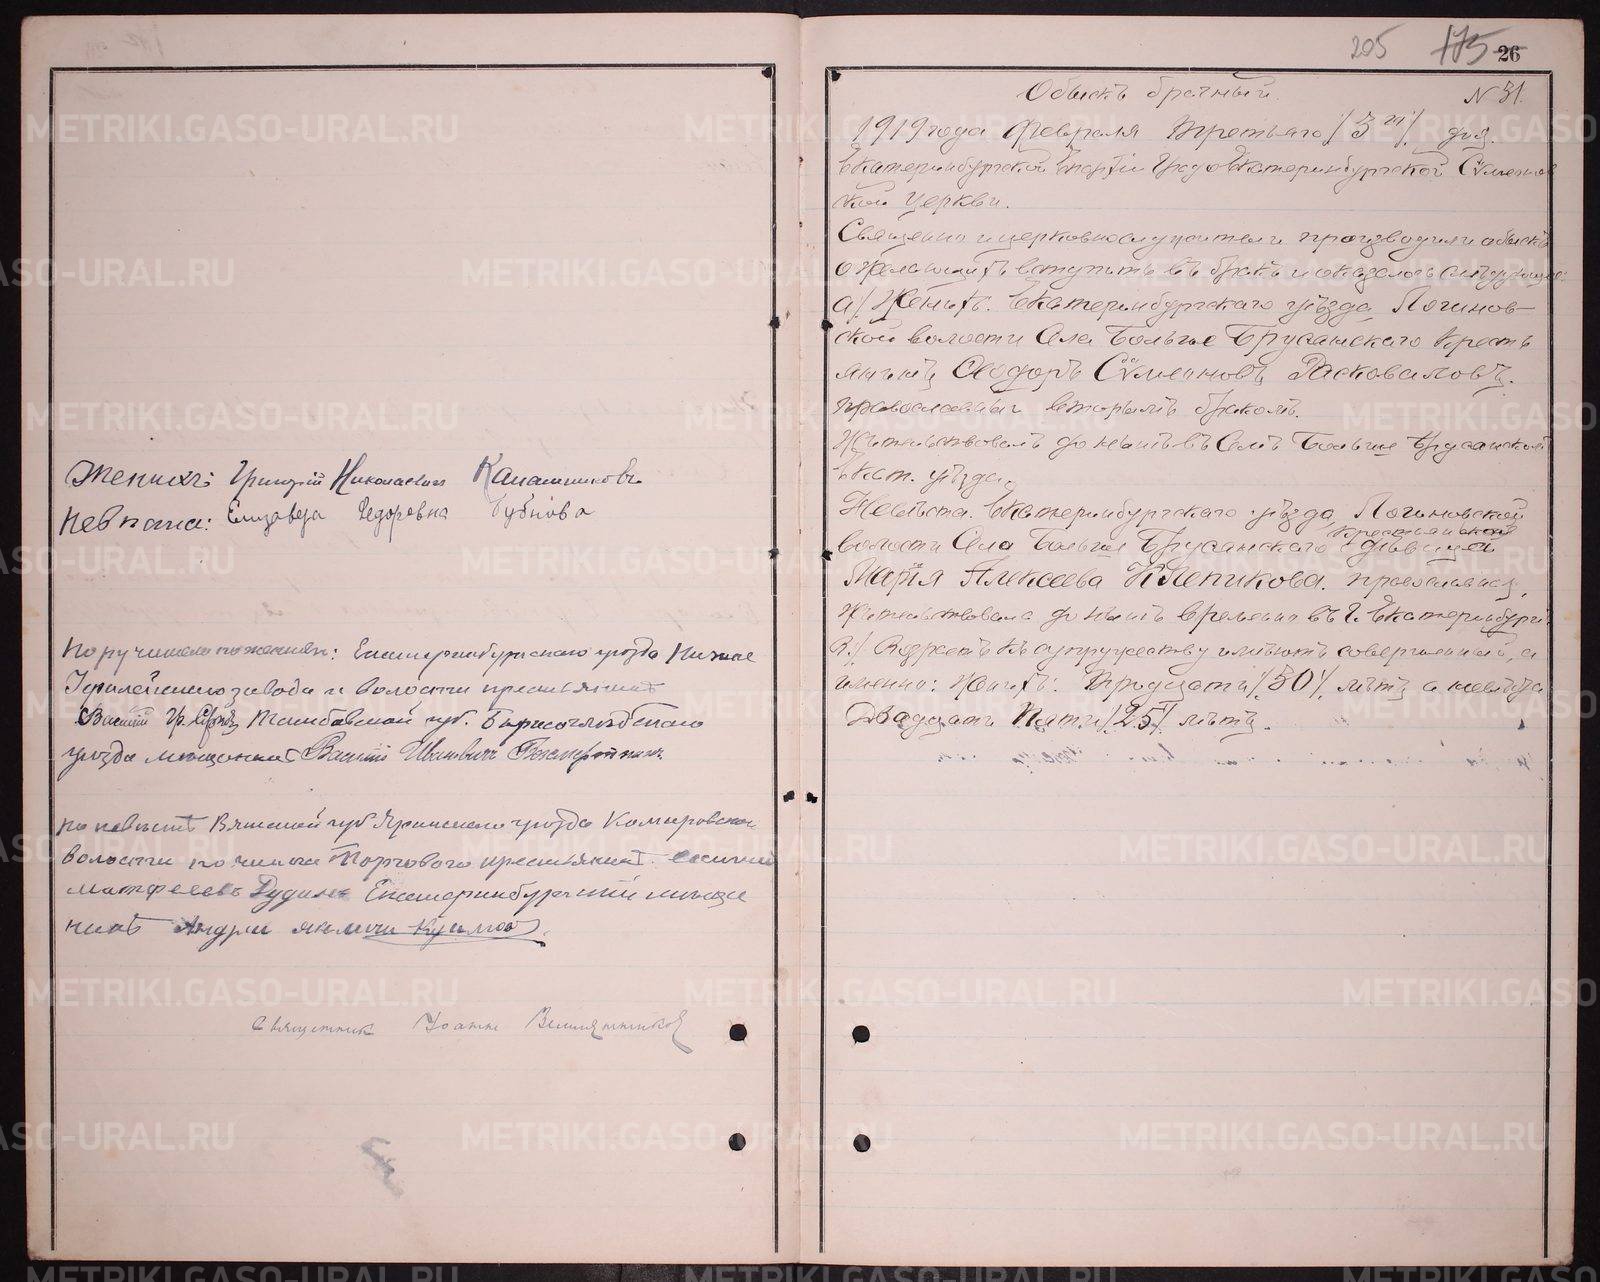 Женихъ: Григорій Николаевич Калашниковъ
Невѣста: Елизавета Федоровна Бубнова
Поручители по женихѣ: Екатеринбургскаго уѣзда Нижне
завода и волости крестьянинъ
Василій Тамбовской губ. Борисоглѣбскаго
уѣзда мѣщанинъ Василій Ивановичъ
по невѣстѣ Вятской губ Яранскаго уѣзда
волости починка Торгового крестьянинъ
Матфеевъ Екатеринбургскій мѣща
нинъ Андрей
Священник Іоаннъ
205 175 26
Обыскъ брачный. N 31.
1919 года Февраля Третьяго /3го/ дня.
Екатеринбургской Епархіи Градо Екатеринбургской Сѵмеонов
ской церкви.
Священно и церковнослужители производили обыскъ
о желающихъ вступить въ бракъ и оказалось слѣдующее:
а/. Женихъ. Екатеринбургскаго уѣзда Логинов-
ской волости Села Больше Брусянскаго Кресть
янинъ Ѳеодоръ Сѵмеоновъ Расковаловъ.
православный вторымъ бракомъ.
Жительствовалъ до нынѣ въ Селѣ Больше Брусянском
Екат. уѣзда.
Невѣста. Екатеринбургскаго уѣзда Логиновской
волости Села Больше Брусянскаго Крестьянская дѣвица
Марія Алексеева Клепикова. православная,
Жительствовала до нынѣ временно въ г. Екатеринбургѣ.
В./ Возрастъ къ супружеству имѣютъ совершенный, а
именно: Женихъ: Тридцати /30/ лѣтъ а невѣста
Двадцати Пяти /25/ лѣтъ.
METRIKI.GASO-URAL.RU